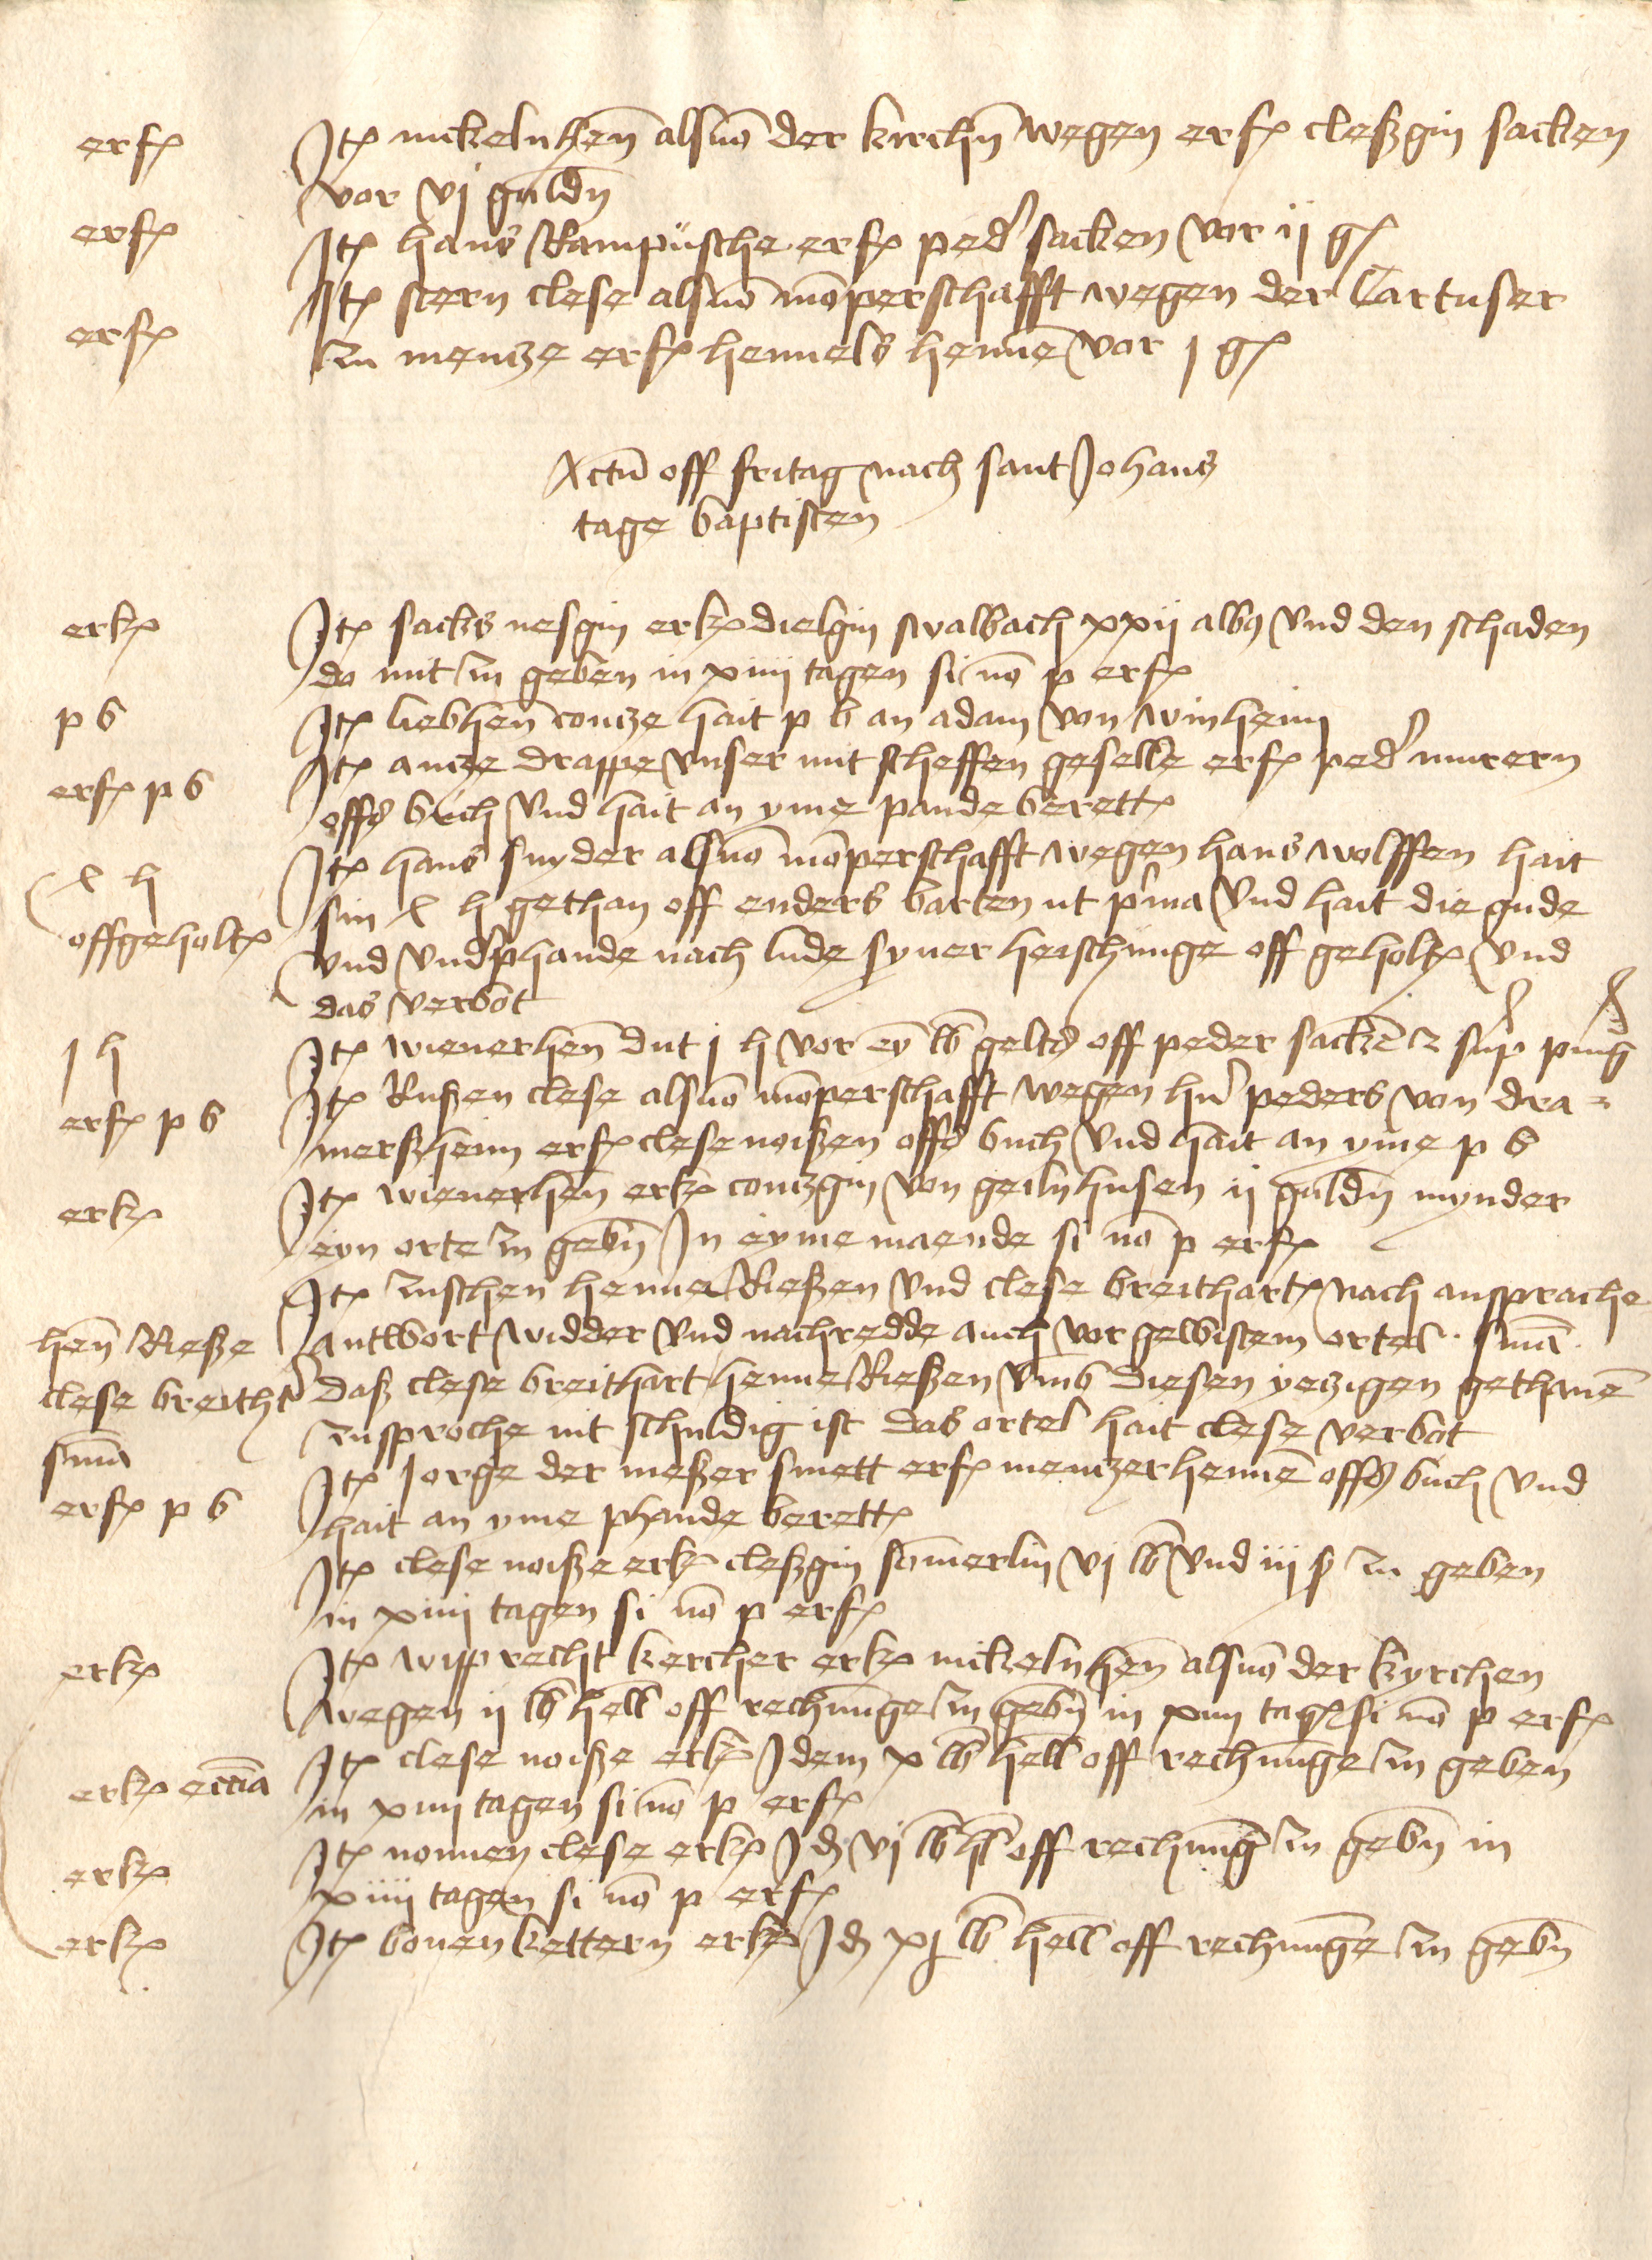 erf
Jt nickelnhen̄ als vō der kirchn̄ wegen erf cleßgin sacken
vor vj guldn̄
erf
Jt hans Rampusche erf ped' sacken vor ij g
Jt stern clese als vō mōperschafft wegen der Cartuser
erf
zu mentze erf hennels hennē vor j g
Actū off fritag nach sant Johans
tage baptisten
erk
Jt sacks nesgin erk dielgin swalbach xxij alb und den schaden
da mit zu geben in xiiij tagen si nō p erf
p b
Jt liebhen̄ contze hait p b an adam von winheim
Jt antze drappe unser mit scheffen geselle erf ped' murern
erf p b
offs buch und hait an yme pande berett
Jt hans snyder als vō mōperschafft wegen hans wolffen hait
x h
sin x h gethan off enders barten ut p̄ma und hait die gude
offgeholt
und und'phande nach lude syner heischunge off geholt und
das verbot
j h
Jt wienerhen̄ dut j h vor ey lb gelts off peder sackē z sup̄ pīng
Jt Rußen clese als vō mōperschafft wegen hn̄ peders von dra=
erf p b
merßheim erf clese noißen offs buch und hait an yme p b
Jt wienerhen̄ erk contzgin von geilnhusen ij guldn̄ mynder
erk
eyn orte zu gebn̄ Jn eyme maende si nō p erf
Jt zuschen henne Rießen und clese breithart nach ansprache
hen̄ Rieße
antwort widder und nachredde auch vor gewistem ortel · sniā
clese breith't
daß clese breithart henne Rießen umb diesen yetzigen gethanē
zusproche nit schuldig ist das ortel hait clese verbot
sniā
Jt Jorge der meßer smett erf mentzerhennē offs buch und
erf p b
hait an yme phande berett
Jt clese noiße erk cleßgin som̄erlin vj lb und iij ß zu geben
in xiiij tagen si nō p erf
erk
Jt wipprecht kercher erk nickelnhen̄ als vō der kyrchen
wegen ij lb hell off rechnunge zu gebn̄ in xiiij tag si nō p erf
Jt clese noiße erk Jdem x lb hell off rechnunge zu geben
erk ecc̄ia
in xiiij tagen si nō p erf
Jt nonnen clese erk Jd vj lb hl off rechnung zu gebn̄ in
erk
xiiij tagen si nō p erf
erk
Jt bonen kettern erk Jd xj lb hell off rechnunge zu gebn̄